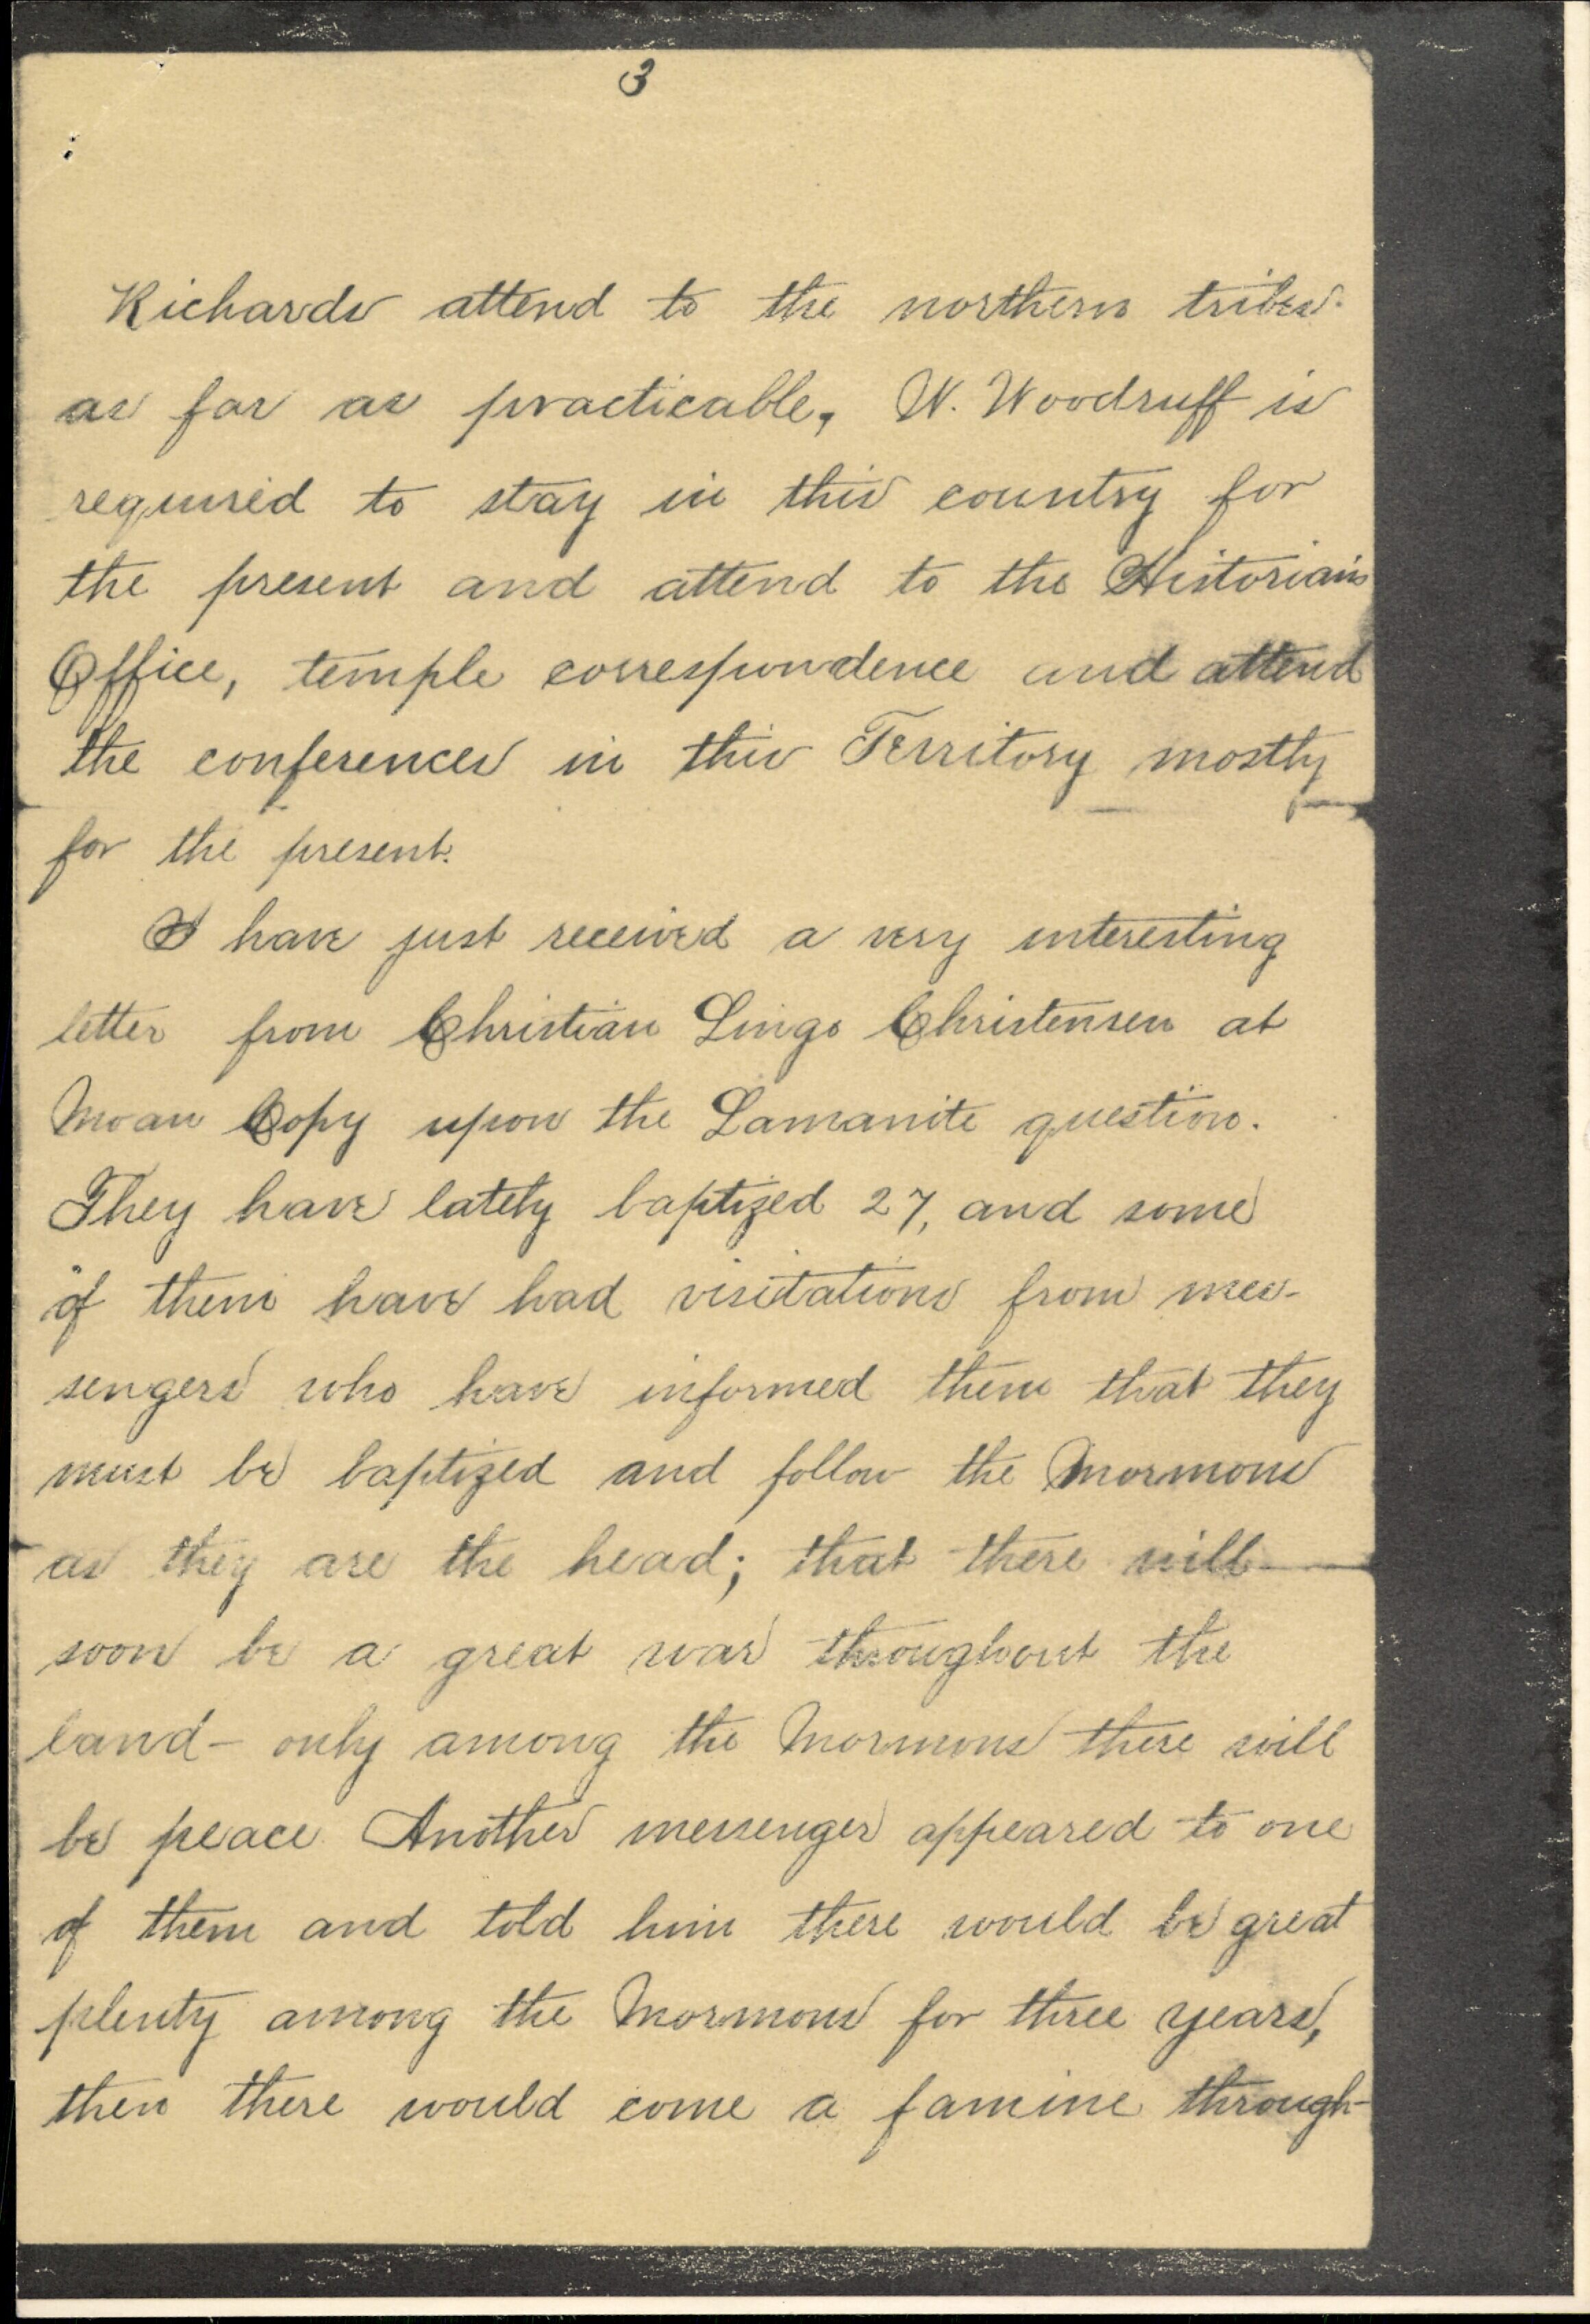 3
Richards attend to the northern tribes.
as far as practicable, W. Woodruff is
required to stay in this country for
the present and attend to the Historian's
Office, temple correspondence and attend
the conferences in this Territory mostly
for the present.
I have just received a very interesting
letter from Christian Lingo Christensen at
Moan Copy upon the Lamanite question.
They have lately baptized 27, and some
of them have had visitations from mes-
sengers who have informed them that they
must be baptized and follow the Mormons
as they are the head; that there will
soon be a great war throughout the
land - only among the Mormons there will
be peace. Another messenger appeared to one
of them and told him there would be great
plenty among the Mormons for three years,
then there would come a famine through-